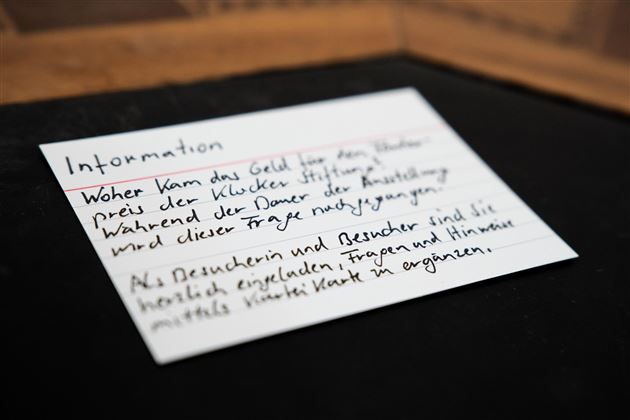 Information
Woher kam das Geld für den
preis der Klucker Stiftung?
Während der Dauer der Ausstellung
wird dieser Frage nachgegangen.
Als Besucherin und Besucher sind Sie
herzlich eingeladen, Fragen und Hinweise
mittels Karteikarte zu ergänzen.